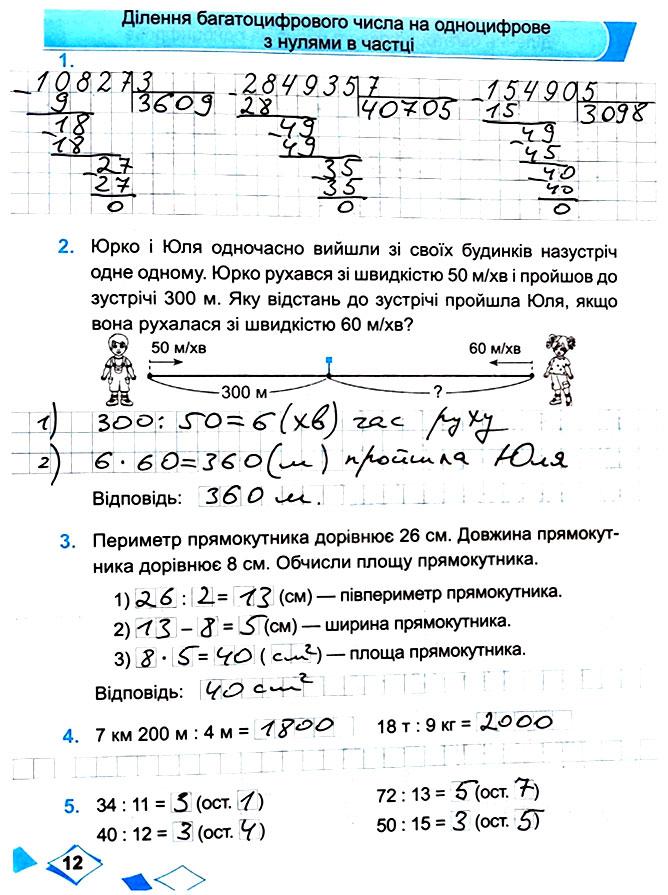 Ділення багатоцифрового числа на одноцифрове
з нулями в частці
1.
10827 3 284935 7 15490 5
9 3609 28 40705 15 3098
18 49 49
18 49 45
27 35 40
27 35 40
0 0 0
2. Юрко і Юля одночасно вийшли зі своїх будинків назустріч
одне одному. Юрко рухався зі швидкістю 50 м/хв і пройшов до
зустрічі 300 м. Яку відстань до зустрічі пройшла Юля, якщо
вона рухалася зі швидкістю 60 м/хв?
50 м/хв 60 м/хв
300 м ?
1) 300 : 50 = 6 (хв) час руху
2) 6 · 60 = 360 (м) пройшла Юля
Відповідь: 360 м.
3. Периметр прямокутника дорівнює 26 см. Довжина прямокут-
ника дорівнює 8 см. Обчисли площу прямокутника.
1) 26 : 2 = 13 (см) — півпериметр прямокутника.
2) 13 - 8 = 5 (см) — ширина прямокутника.
3) 8 · 5 = 40 (см²) — площа прямокутника.
Відповідь: 40 см²
4. 7 км 200 м : 4 м = 1800 18 т : 9 кг = 2000
5. 34 : 11 = 3 (ост. 1) 72 : 13 = 5 (ост. 7)
40 : 12 = 3 (ост. 4) 50 : 15 = 3 (ост. 5)
12